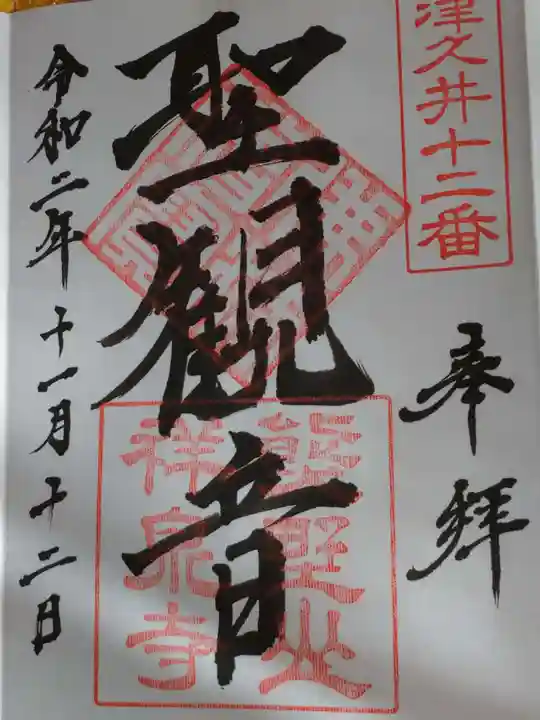 津久井十二番
奉拝
聖観音
熊野山
祥泉寺
令和二年十一月十二日